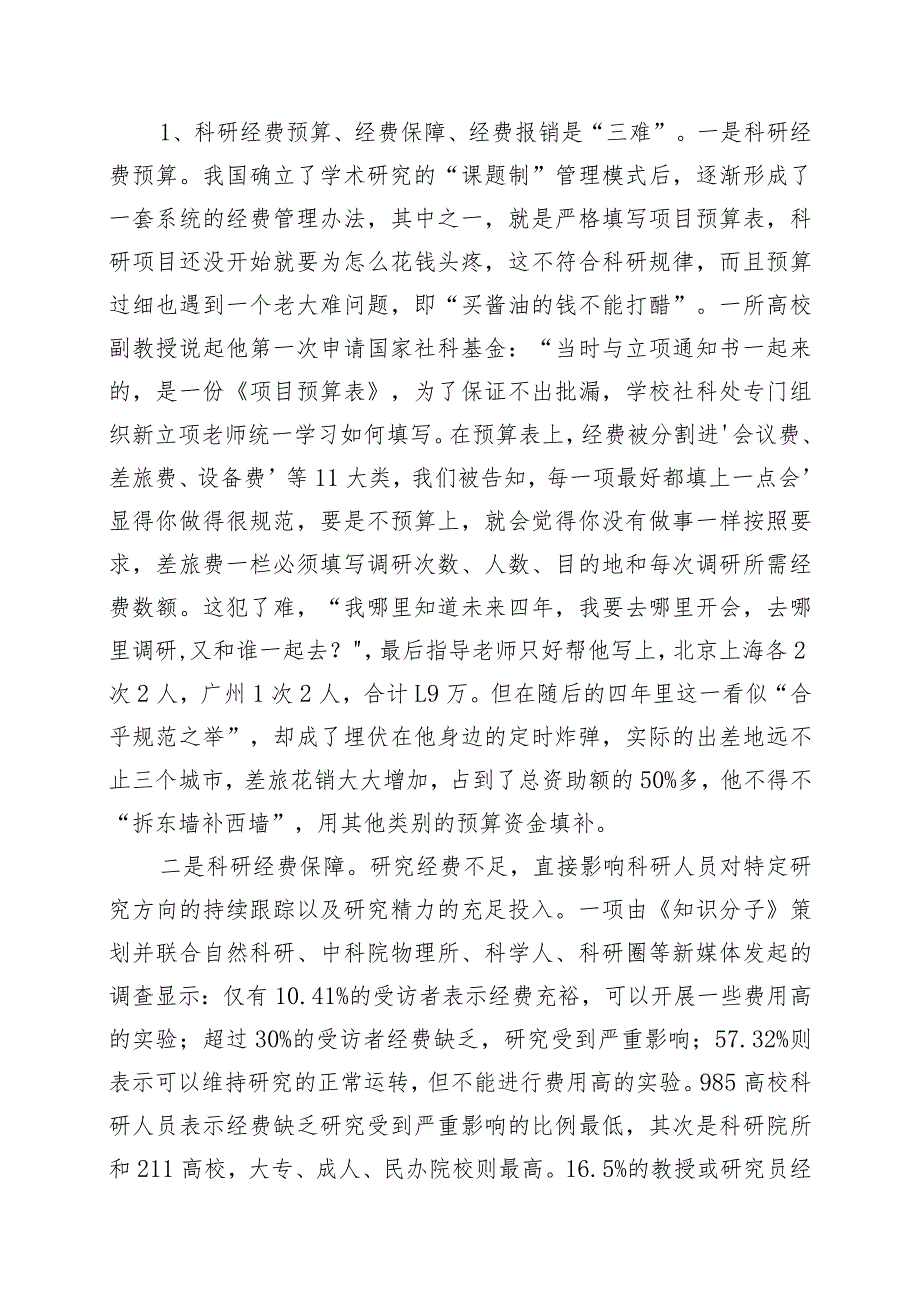 1、科研经费预算、经费保障、经费报销是“三难”。一是科研经
费预算。我国确立了学术研究的“课题制”管理模式后，逐渐形成了
一套系统的经费管理办法，其中之一，就是严格填写项目预算表，科
研项目还没开始就要为怎么花钱头疼，这不符合科研规律，而且预算
过细也遇到一个老大难问题，即“买酱油的钱不能打醋”。一所高校
副教授说起他第一次申请国家社科基金：“当时与立项通知书一起来
的，是一份《项目预算表》，为了保证不出批漏，学校社科处专门组
织新立项老师统一学习如何填写。在预算表上，经费被分割进'会议费、
差旅费、设备费’等11大类，我们被告知，每一项最好都填上一点会’
显得你做得很规范，要是不预算上，就会觉得你没有做事一样按照要
求，差旅费一栏必须填写调研次数、人数、目的地和每次调研所需经
费数额。这犯了难，“我哪里知道未来四年，我要去哪里开会，去哪
里调研,又和谁一起去？",最后指导老师只好帮他写上，北京上海各2
次2人，广州1次2人，合计L9万。但在随后的四年里这一看似“合
乎规范之举”，却成了埋伏在他身边的定时炸弹，实际的出差地远不
止三个城市，差旅花销大大增加，占到了总资助额的50%多，他不得不
“拆东墙补西墙”，用其他类别的预算资金填补。
二是科研经费保障。研究经费不足，直接影响科研人员对特定研
究方向的持续跟踪以及研究精力的充足投入。一项由《知识分子》策
划并联合自然科研、中科院物理所、科学人、科研圈等新媒体发起的
调查显示：仅有10.41%的受访者表示经费充裕，可以开展一些费用高
的实验；超过30%的受访者经费缺乏，研究受到严重影响；57.32%则
表示可以维持研究的正常运转，但不能进行费用高的实验。985高校科
研人员表示经费缺乏研究受到严重影响的比例最低，其次是科研院所
和211高校，大专、成人、民办院校则最高。16.5%的教授或研究员经